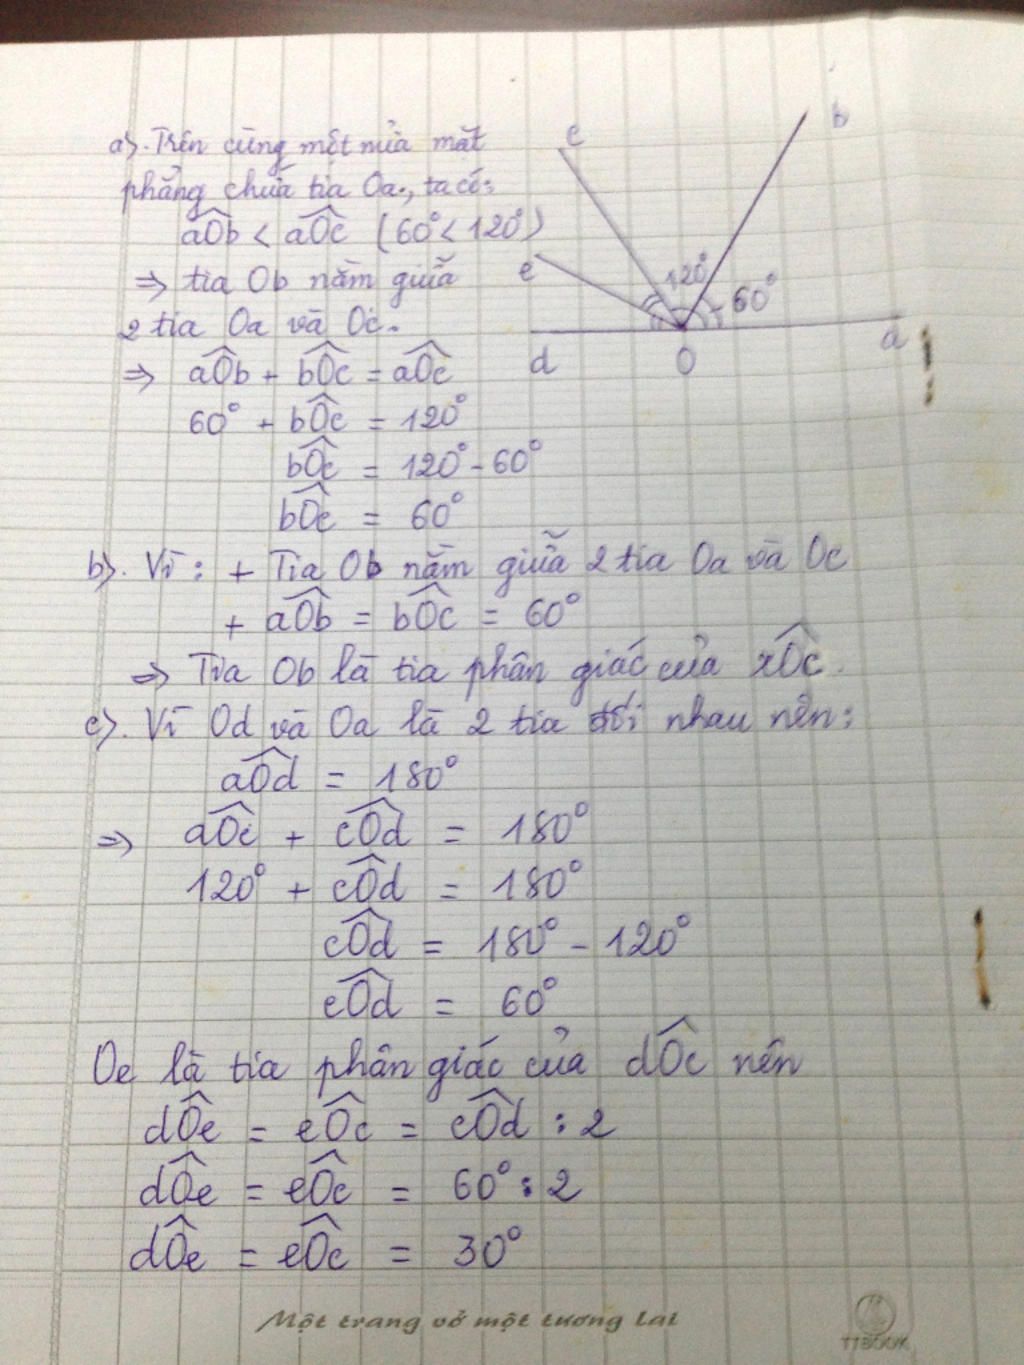 a). Trên cùng một nửa mặt
phẳng chứa tia Oa, ta có:
aOb̂ < aOĉ (60° < 120°)
⇒ tia Ob nằm giữa
2 tia Oa và Oc.
⇒ aOb̂ + bOĉ = aOĉ
60° + bOĉ = 120°
bOĉ = 120° - 60°
bOĉ = 60°
c
b
e
120°
60°
d
O
a
b). Vì: + Tia Ob nằm giữa 2 tia Oa và Oc
+ aOb̂ = bOĉ = 60°
⇒ Tia Ob là tia phân giác của xOĉ.
c). Vì Od và Oa là 2 tia đối nhau nên:
aOd̂ = 180°
⇒ aOĉ + cOd̂ = 180°
120° + cOd̂ = 180°
cOd̂ = 180° - 120°
cOd̂ = 60°
Oe là tia phân giác của dOĉ nên
dOê = eOĉ = cOd̂ : 2
dOê = eOĉ = 60° : 2
dOê = eOĉ = 30°
Một trang vở một tương lai
TTBOOK